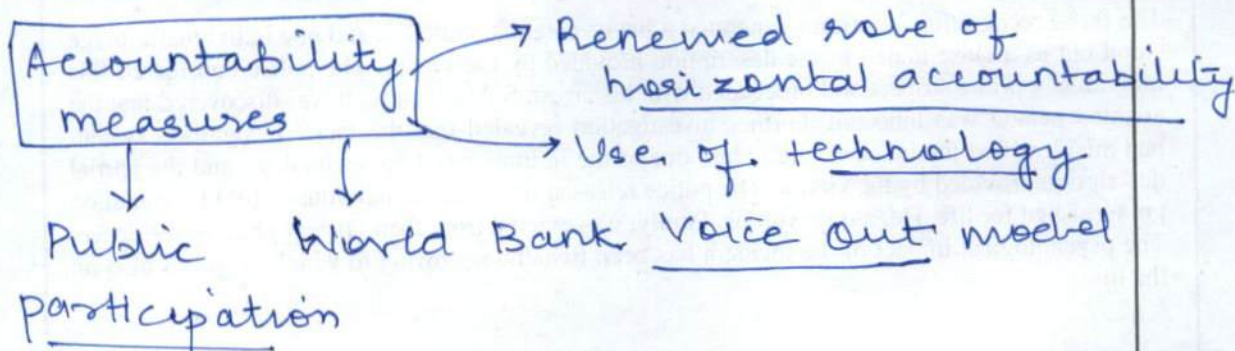 Accountability
measures
Renewed role of
horizontal accountability
Use of technology
Public
participation
World Bank Voice Out model